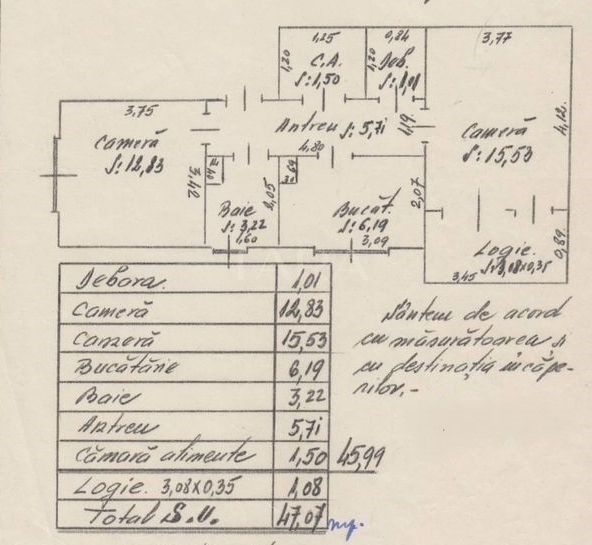 1,25
0,84
3,77
1,20
C.A.
S:1,50
1,20
Deb.
S:1,01
3,75
Cameră
S:12,83
Antreu S:5,71
4,80
4,19
Cameră
S:15,53
4,12
3,42
2,05
2,07
Baie
S:3,22
1,60
Bucăt.
S:6,19
3,09
Logie.
S:3,08x0,35
3,45
0,89
Debara 1,01
Cameră 12,83
Cameră 15,53
Bucătărie 6,19
Baie 3,22
Antreu 5,71
Cămară alimente 1,50 45,99
Logie. 3,08x0,35 1,08
Total S.U. 47,07 mp.
Sântem de acord
cu măsurătoarea și
cu destinația încăpe-
rilor.-